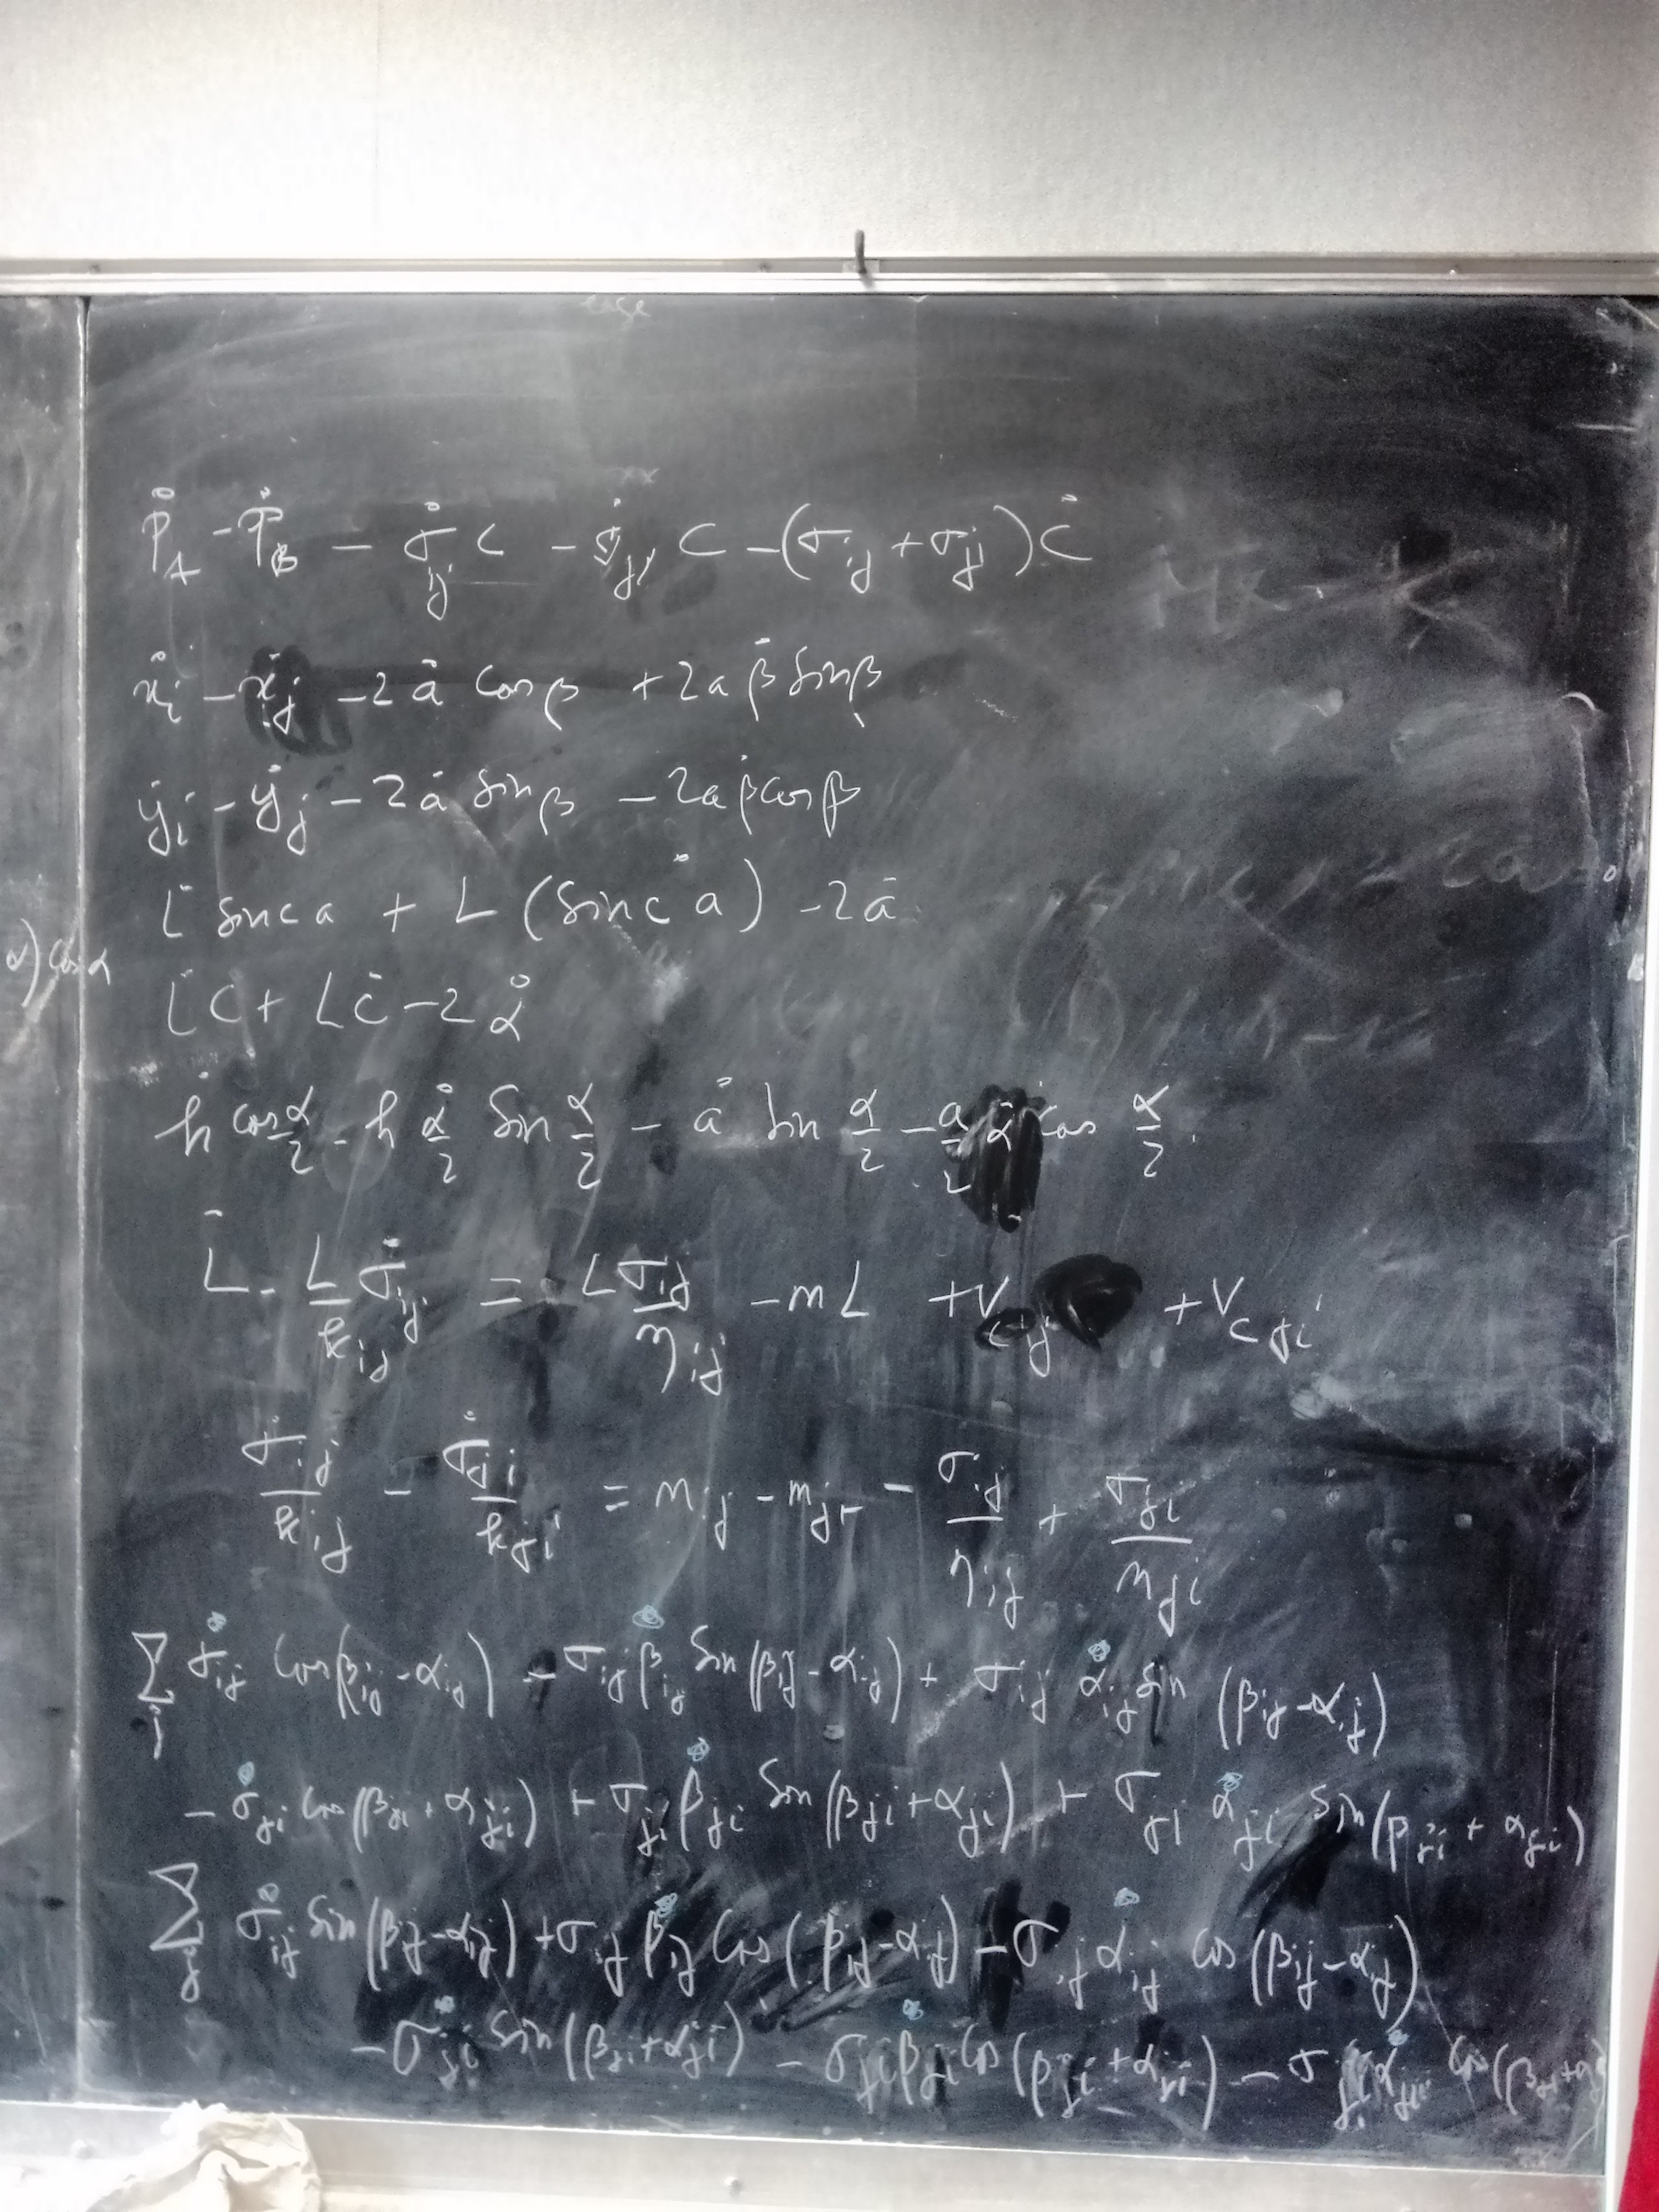 case
Ṗ_A - Ṗ_B - σ̇_ij C - σ̇_ji C - (σ_ij + σ_ji) Ċ
ẋ_i - ẋ_j - 2ȧ cos β + 2a β̇ sin β
ẏ_i - ẏ_j - 2ȧ sin β - 2a β̇ cos β
L̇ sinc a + L (sinc a)˙ - 2ȧ
α) cos α
L̇C + LĊ - 2α̇
ḣ cos α/2 - h α̇/2 sin α/2 - ȧ sin α/2 - a/2 α̇ cos α/2
L̇ - L/k_ij σ̇_ij = L σ_ij/η_ij - mL + V_cij + V_cji
σ̇_ij/k_ij - σ̇_ji/k_ji = m_ij - m_ji - σ_ij/η_ij + σ_ji/η_ji
∑_j σ̇_ij cos(β_ij - α_ij) - σ_ij β̇_ij sin(β_ij - α_ij) + σ_ij α̇_ij sin(β_ij - α_ij)
- σ̇_ji cos(β_ji + α_ji) + σ_ji β̇_ji sin(β_ji + α_ji) + σ_ji α̇_ji sin(β_ji + α_ji)
∑_j σ̇_ij sin(β_ij - α_ij) + σ_ij β̇_ij cos(β_ij - α_ij) - σ_ij α̇_ij cos(β_ij - α_ij)
- σ̇_ji sin(β_ji + α_ji) - σ_ji β̇_ji cos(β_ji + α_ji) - σ_ji α̇_ji cos(β_ji + α_ji)